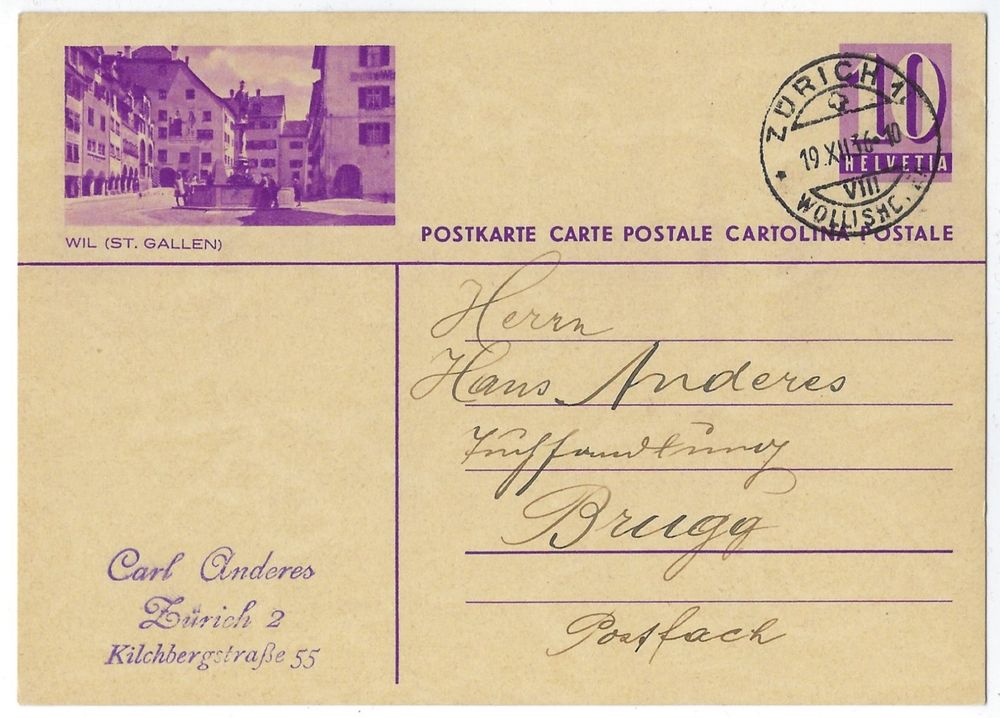 WIL (ST. GALLEN)
10
HELVETIA
ZÜRICH 1
19.XII.36-10
VIII
WOLLISH
POSTKARTE CARTE POSTALE CARTOLINA POSTALE
Herrn
Hans Anderes
Tuchhandlung
Brugg
Postfach
Carl Anderes
Zürich 2
Kilchbergstraße 55